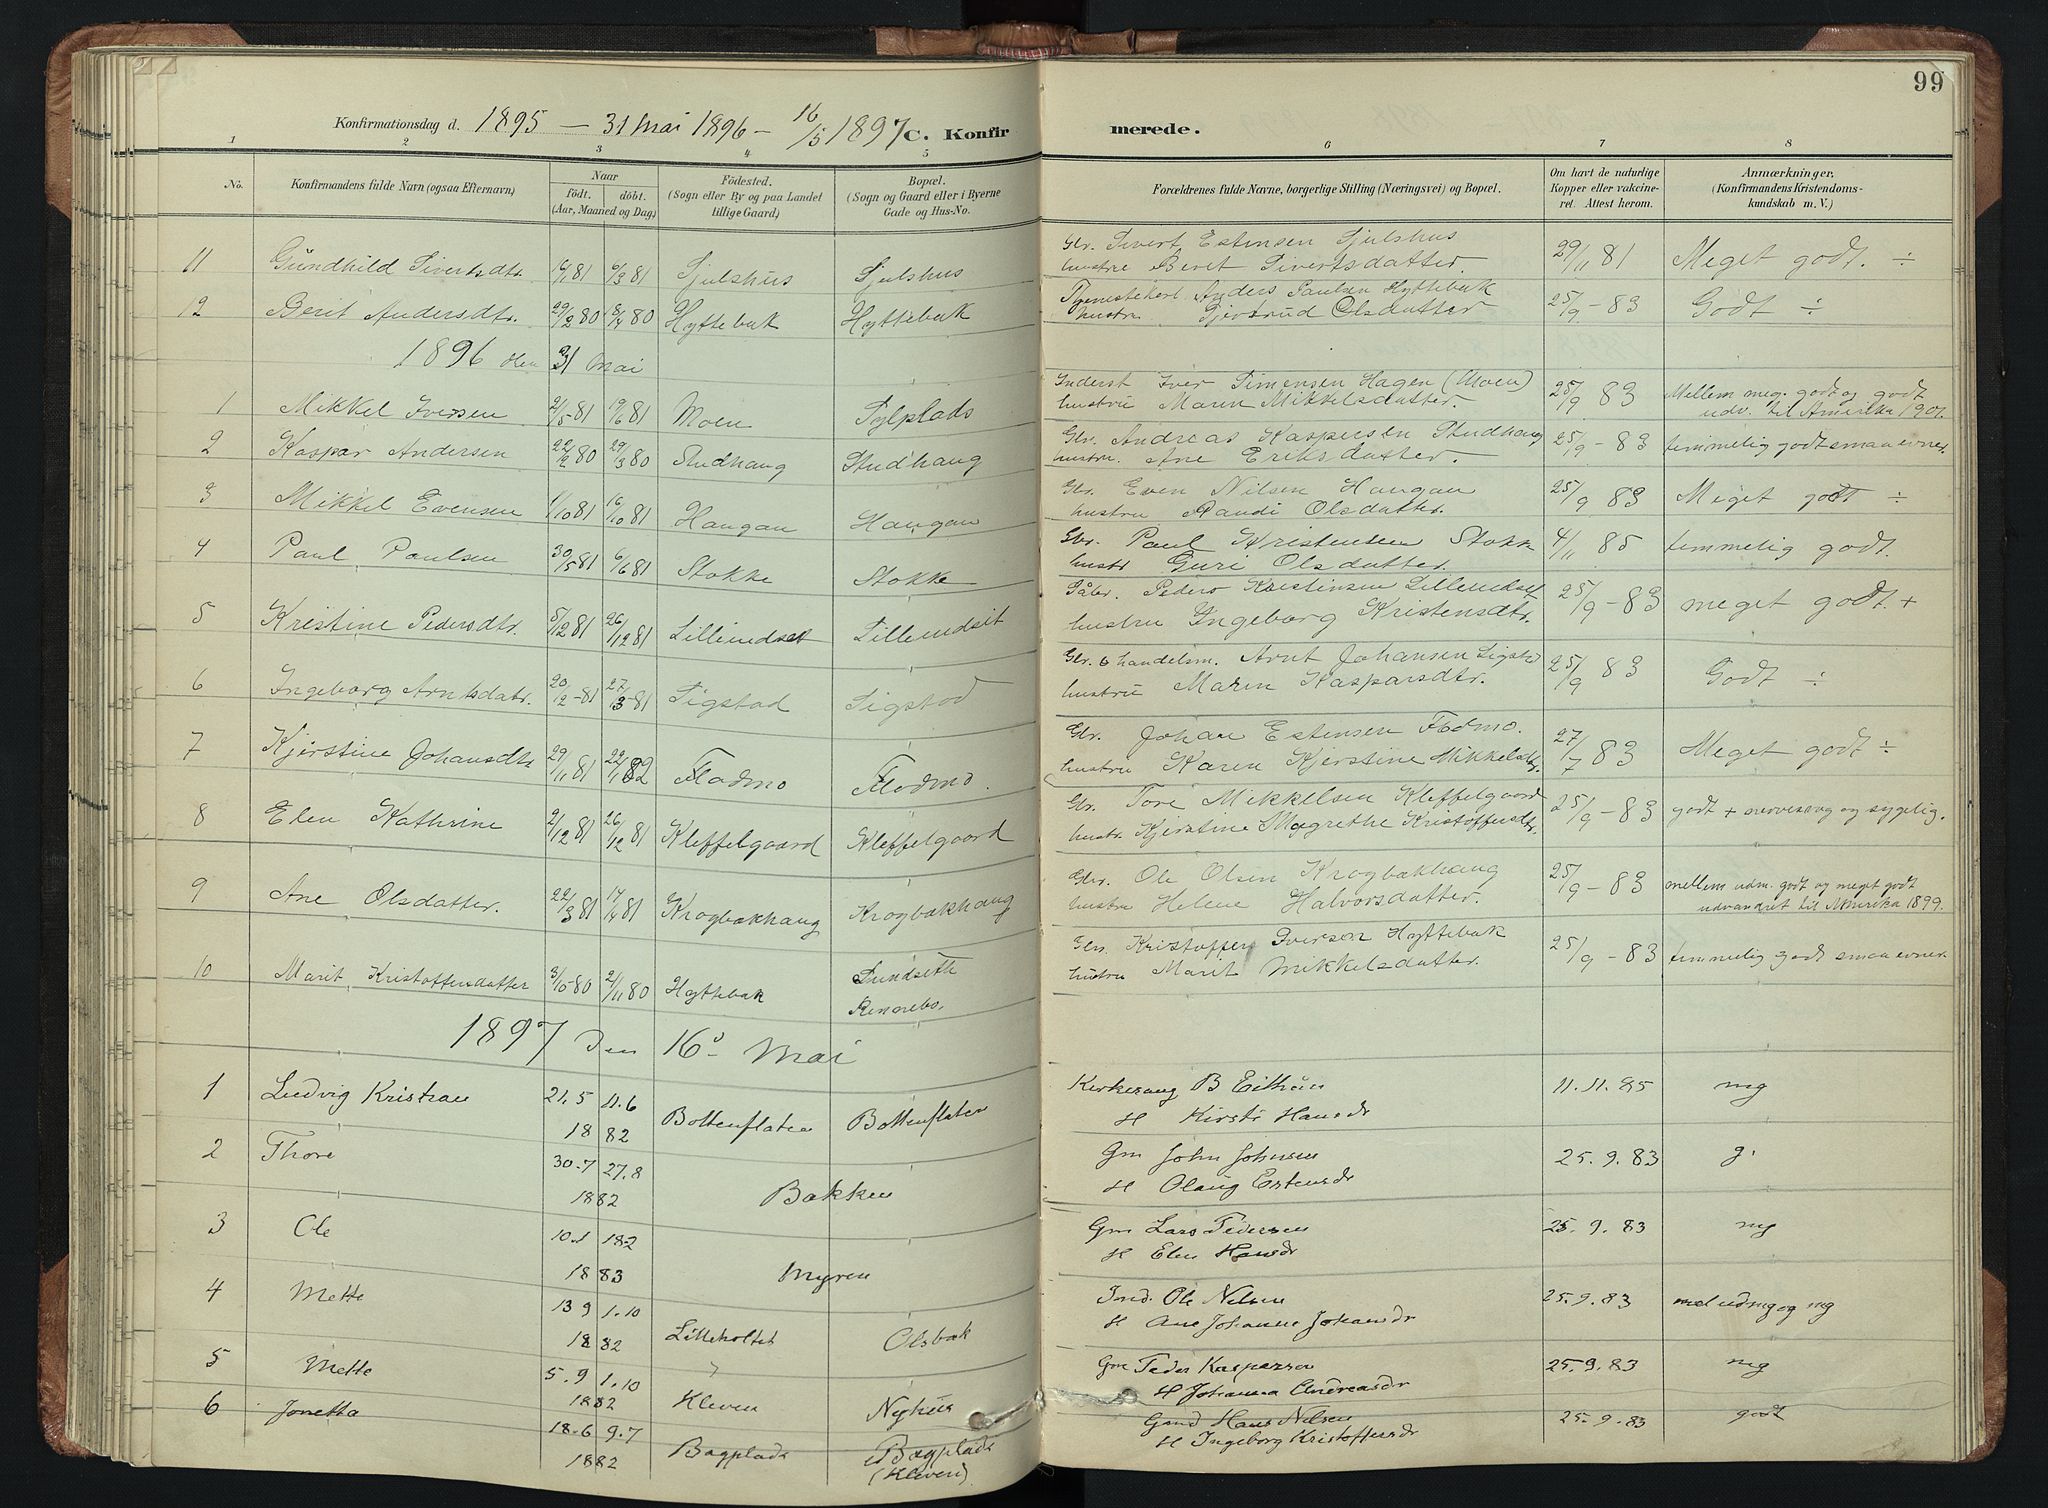 99
Konfirmationsdag d. 1895 — 31 Mai 1896 — 16/5 1897 C. Konfirmerede.
1 2 3 4 5 6 7 8
No.
Konfirmandens fulde Navn (ogsaa Efternavn)
Naar
födt. döbt.
(Aar, Maaned og Dag.)
Födested.
(Sogn eller By og paa Landet
tillige Gaard)
Bopæl.
(Sogn og Gaard eller i Byerne
Gade og Hus-No.
Forældrenes fulde Navne, borgerlige Stilling (Næringsvei) og Bopæl.
Om havt de naturlige
Kopper eller vakcine-
ret. Attest herom.
Anmærkninger.
(Konfirmandens Kristendoms-
kundskab m. V.)
Gbr. Sivert Estensen Sjulshus
11 Gundhild Sivertsdtr. 81 81 Sjulshus Sjulshus hustru Beret Sivertsdatter. 29/11 81 Meget godt. ÷
Anders Paulsen Hyttebak
12 Berit Andersdtr. 29/2 80 80 Hyttebak Hyttebak hustru Gjertrud Olsdatter 25/9 - 83 Godt ÷
1896 den 31 Mai
Inderst Iver Simensen Hagen (Moen)
1 Mikkel Iversen 2/5 81 19/6 81 Moen Sylplads hustru Maren Mikkelsdatter. 25/9 83 Mellem meg. godt og godt
udv. til Amerika 1901.
Gbr. Andreas Kaspersen Studhaug
2 Kaspar Andersen 22/2 80 29/3 80 Studhaug Studhaug hustru Ane Eriksdatter. 25/9 - 83 temmelig godt smaa evner.
Gbr. Even Nilsen Haugan
3 Mikkel Evensen 1/10 81 16/10 81 Haugan Haugan hustru Randi Olsdatter. 25/9 83 Meget godt ÷
Gbr. Paul Kristensen Stokk
4 Paul Paulsen 30/5 81 6/6 81 Stokke Stokke hustr Guri Olsdatter. 4/11 85 temmelig godt.
Peder Kristensen Lilleindset
5 Kristine Pedersdtr. 8/12 81 26/12 81 Lilleindset Lilleindset hustru Ingeborg Kristensdtr. 25/9 - 83 meget godt. +
Gbr. & handelsm. Arnt Johansen Sigstad
6 Ingeborg Arntsdatr. 20/2 - 81 27/3 - 81 Sigstad Sigstad hustru Maren Kasparsdtr. 25/9 83 Godt ÷
Gbr. Johan Estensen Flodmo.
7 Kjerstine Johansdtr 29/11 81 22/1 82 Flodmo Flodmo. hustru Karen Kjerstine Mikkelsdtr. 27/7 83 Meget godt ÷
Gbr. Tore Mikkelsen Kleffelgaard
8 Elen Kathrine 2/12 81 26/12 81 Kleffelgaard Kleffelgaard hustr Kjerstine Magrethe Kristoffersdtr. 25/9 - 83 godt + nervesvag og sygelig.
Gbr. Ole Olsen Krogbakhaug
9 Ane Olsdatter. 22/3 81 17/4 81 Krogbakhaug Krogbakhaug hustru Helene Halvorsdatter. 25/9 - 83 mellem udm. godt og meget godt
udvandret til Amerika 1899.
Gbr. Kristoffer Iversen Hyttebak
10 Marit Kristoffersdatter 3/10 - 80 2/11 80 Hyttebak Lundseth
Rennebo. hustru Marit Mikkelsdatter. 25/9 - 83 temmelig godt smaa evner.
1897 Den 16d Mai
1 Ludvig Kristian 21.5 11.6
1882 Bottenflaten Bottenflaten Kirkesang B Eithun
H Kirsti Hansdr 11.11.85 mg
2 Thore 30.7 27.8
1882 Bakken Gm John Johnsen
H Olaug Estensdr 25.9.83 g.
3 Ole 10.1 18.2
1883 Myren Gm Lars Pedersen
H Elen Hansdr 25.9.83 mg
4 Mette 13 9 1.10
1882 Litleholtet Olsbak Ind. Ole Nilsen
H Ane Johanne Johansdr 25.9.83 mel udmg og mg
5 Mette 5.9 1.10
1882 Kleven Nyhus Gm Peder Kaspersen
H Johanna Andreasdr 25.9.83 mg
6 Jonetta 18.6 9.7
1882 Bagplads Bagplads
(Kleven) Hans Nilsen
H Ingeborg Kristoffersdr 25.9.83 godt